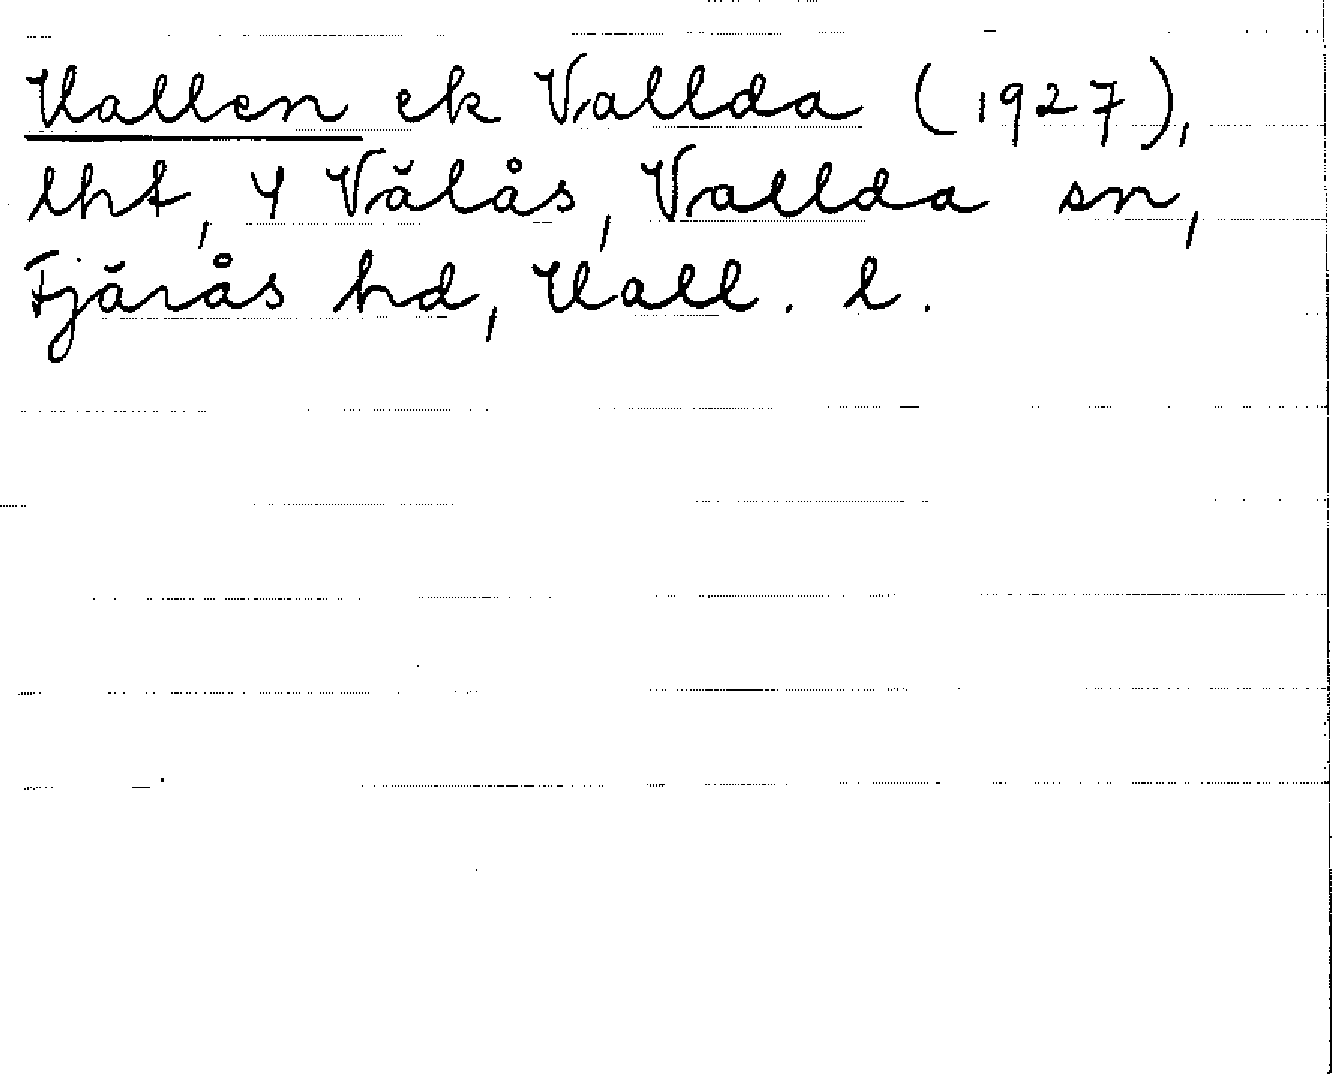 Hallen ek Vallda (1927),
lht, Y Välås, Vallda sn,
Fjärås hd, Hall. l.